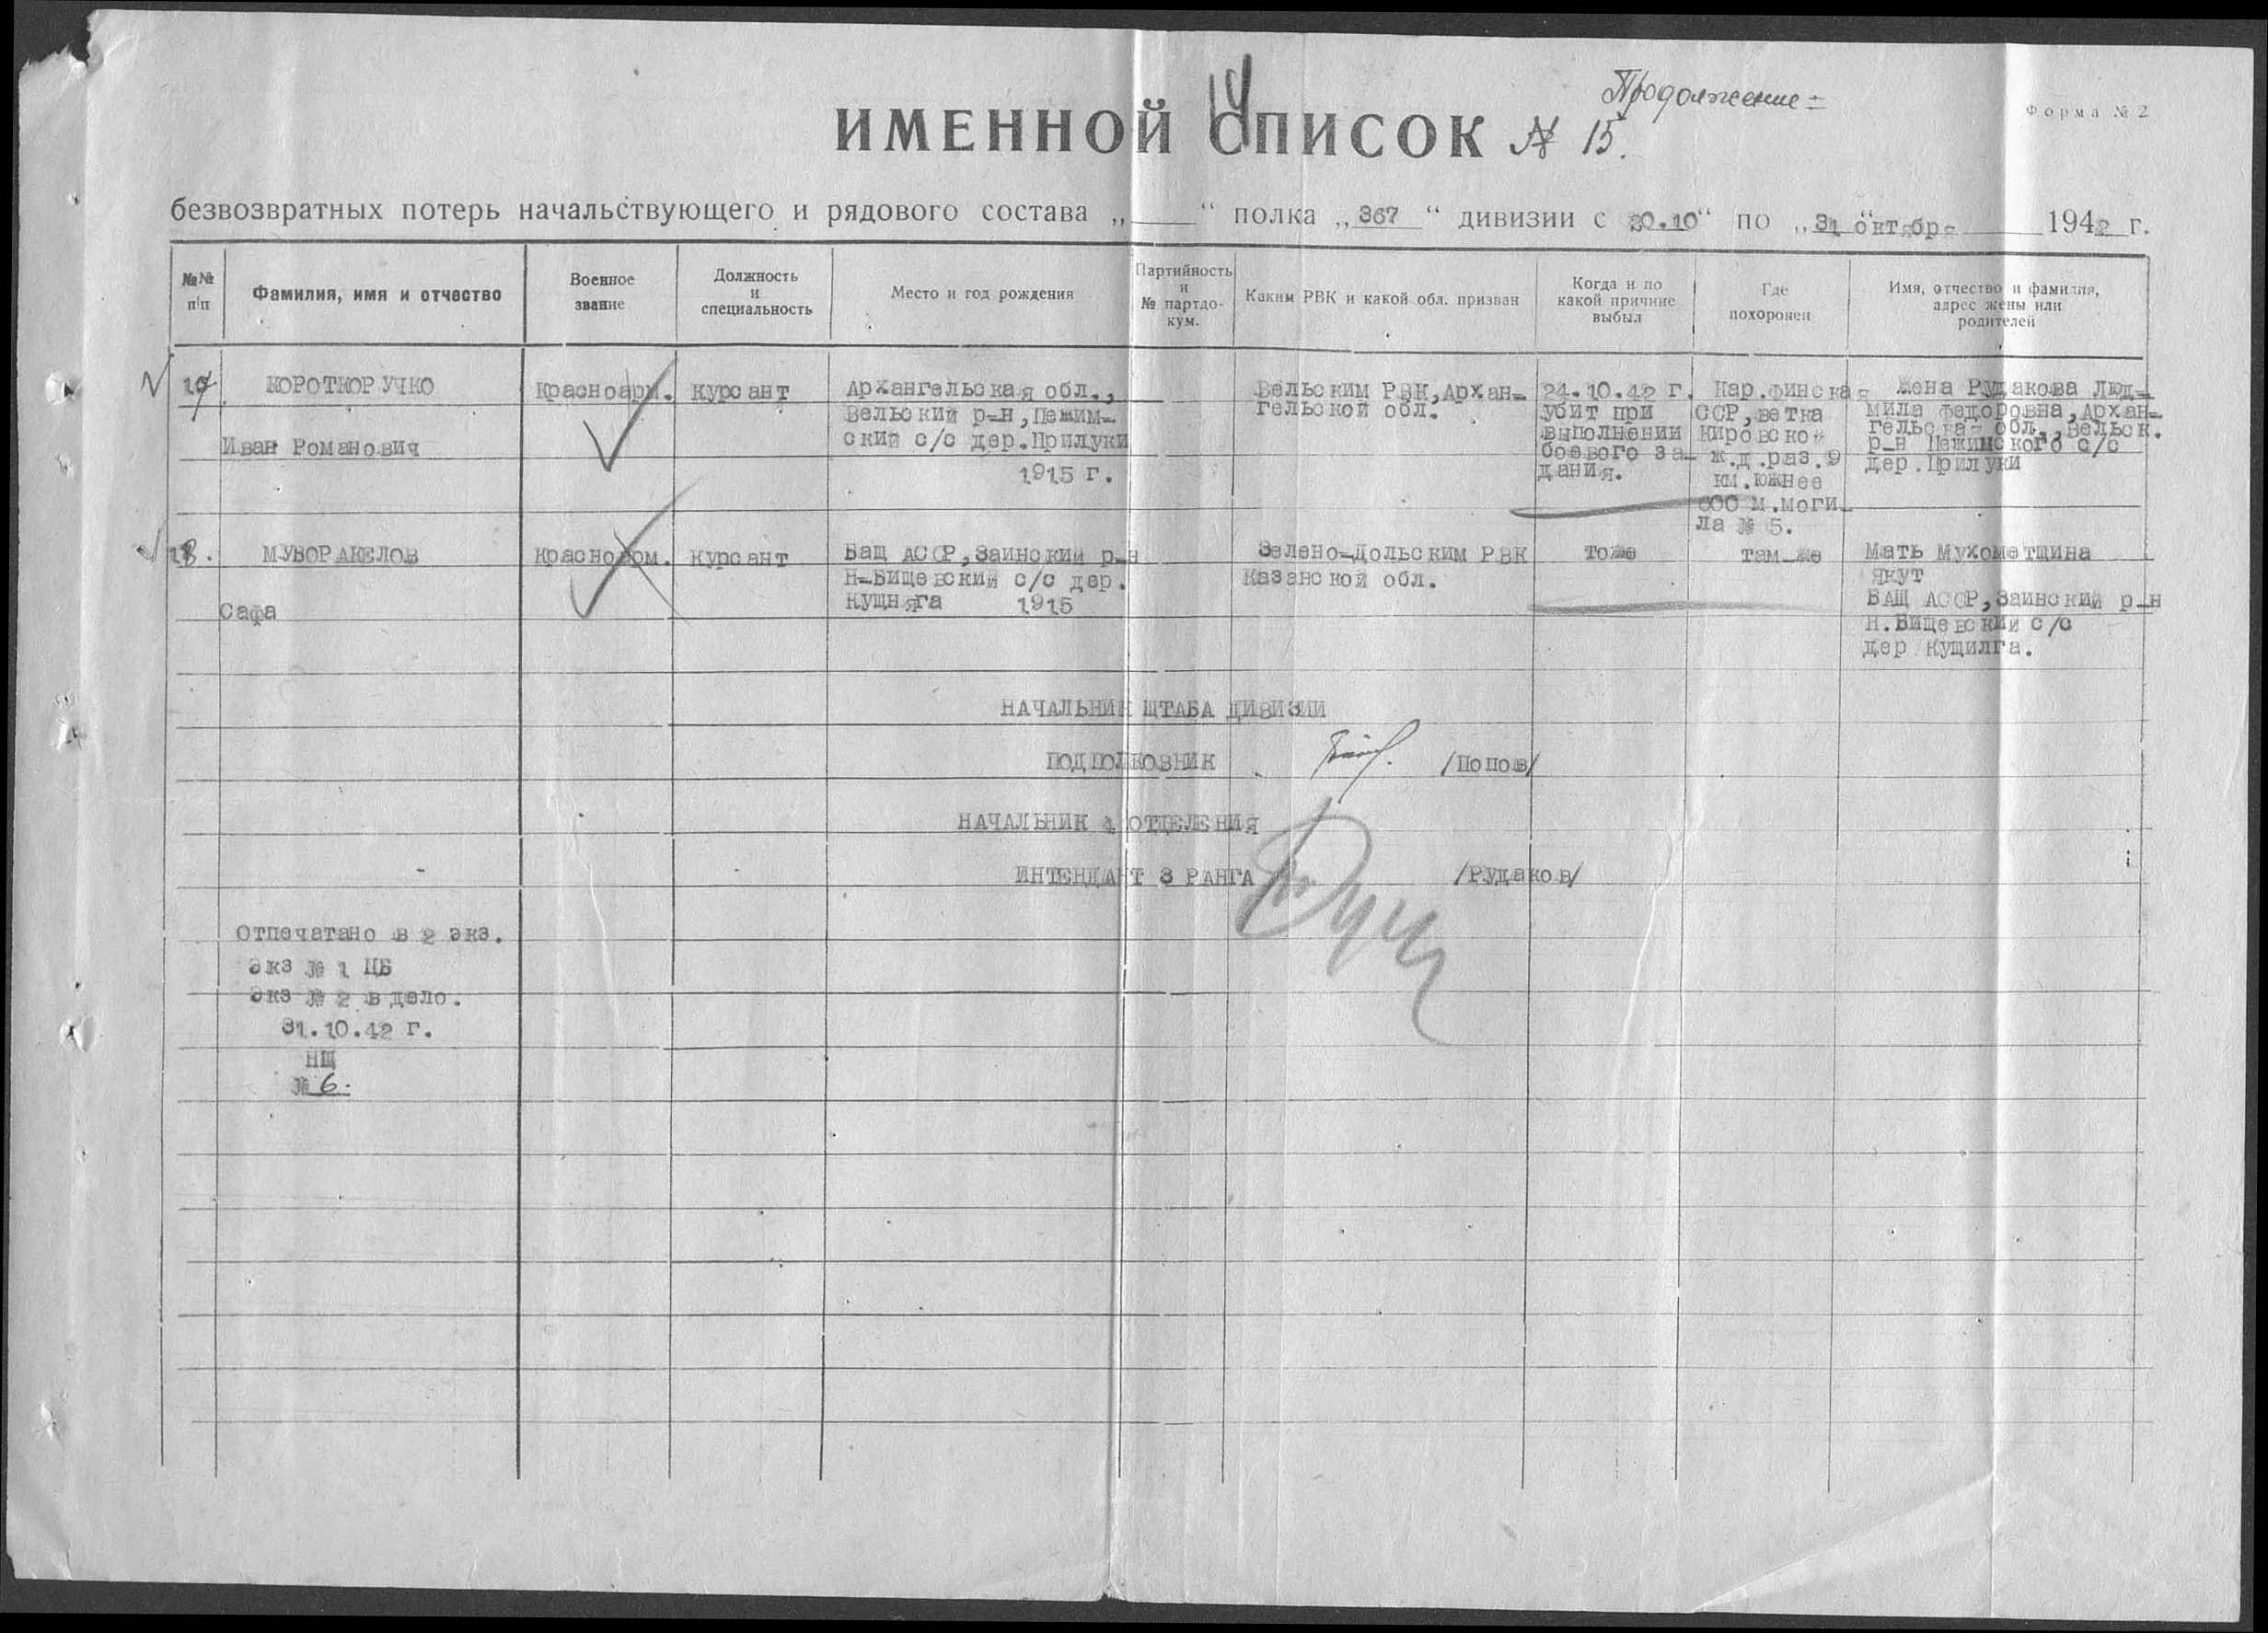 Продолжение-
14
ИМЕННОЙ СПИСОК № 15.
Форма № 2
безвозвратных потерь начальствующего и рядового состава „ “ полка „367“ дивизии с 20.10“ по „31“ октября 1942 г.
№№ п/п
Фамилия, имя и отчество
Военное звание
Должность и специальность
Место и год рождения
Партийность и № партдо-кум.
Каким РВК и какой обл. призван
Когда и по какой причине выбыл
Где похоронен
Имя, отчество и фамилия, адрес жены или родителей
17.
КОРОТКОРУЧКО
Иван Романович
красноарм.
курсант
Архангельская обл.,
Вельский р-н, Пежим-
ский с/с дер.Прилуки
1915 г.
Вельским РВК, Архан-
гельской обл.
24.10.42 г.
убит при
выполнении
боевого за-
дания.
Кар.финская
ССР, ветка
Кировской
ж.д.раз.9
км.южнее
600 м.моги-
ла № 5.
Жена Рудакова Люд-
мила Федоровна, Архан-
гельская обл., Вельск.
р-н Пежимского с/с
дер.Прилуки
18.
МУВОРАКЕЛОВ
Сафа
курсант
Ващ АССР, Заинский р-н
Н-Бищевский с/с дер.
Кущняга 1915
Зелено-Дольским РВК
Казанской обл.
тоже
там-же
Мать Мухометщина
якут
БАЩ АССР, Заинский р-н
Н.Бищевский с/с
дер Кущилга.
НАЧАЛЬНИК ШТАБА ДИВИЗИИ
ПОДПОЛКОВНИК /Попов/
НАЧАЛЬНИК 1 ОТДЕЛЕНИЯ
ИНТЕНДАНТ 3 РАНГА /Рудаков/
Отпечатано в 2 экз.
Экз № 1 ЦБ
Экз № 2 в дело.
31.10.42 г.
НЩ
№ 6.